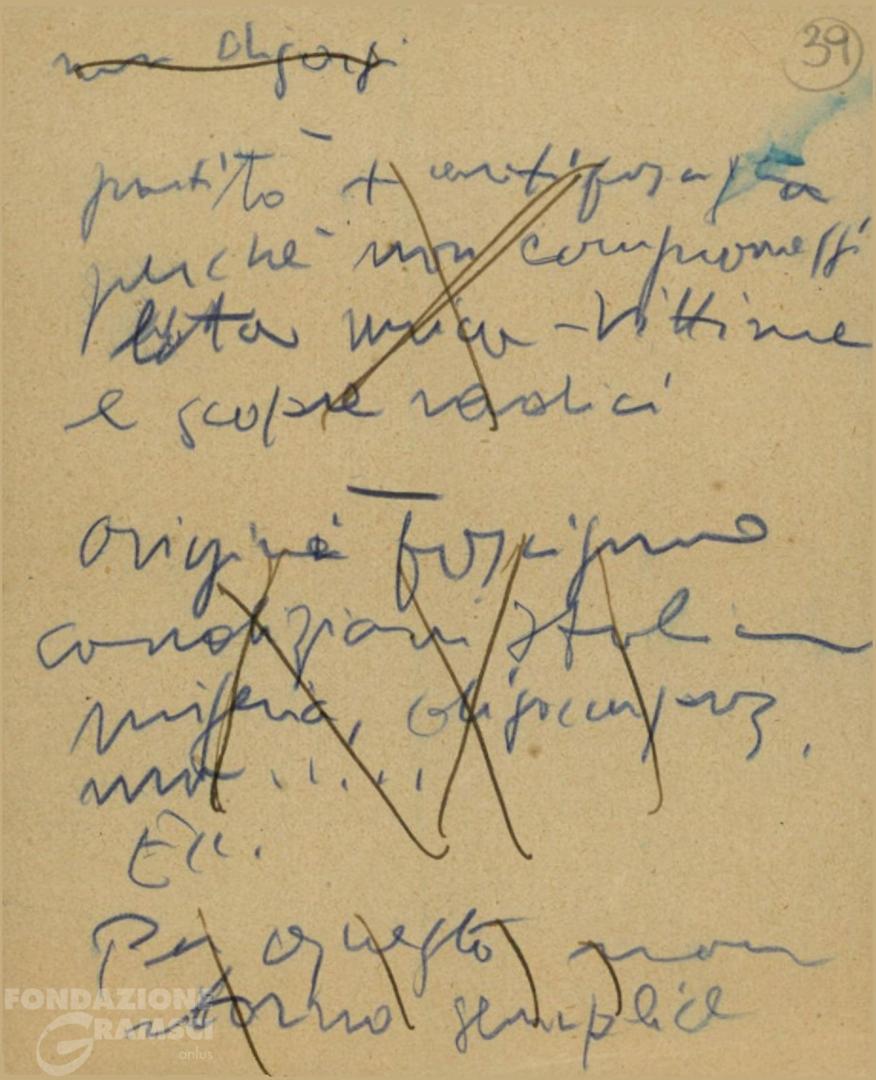 39
non
partito + antifascista
perché non compromessi
lotta unica - Vittime
e scopre radici
origine Fascismo
condizioni Italia
miseria,
ma .....
Ecc.
Per questo non
ritorno semplice
FONDAZIONE
GRAMSCI
onlus